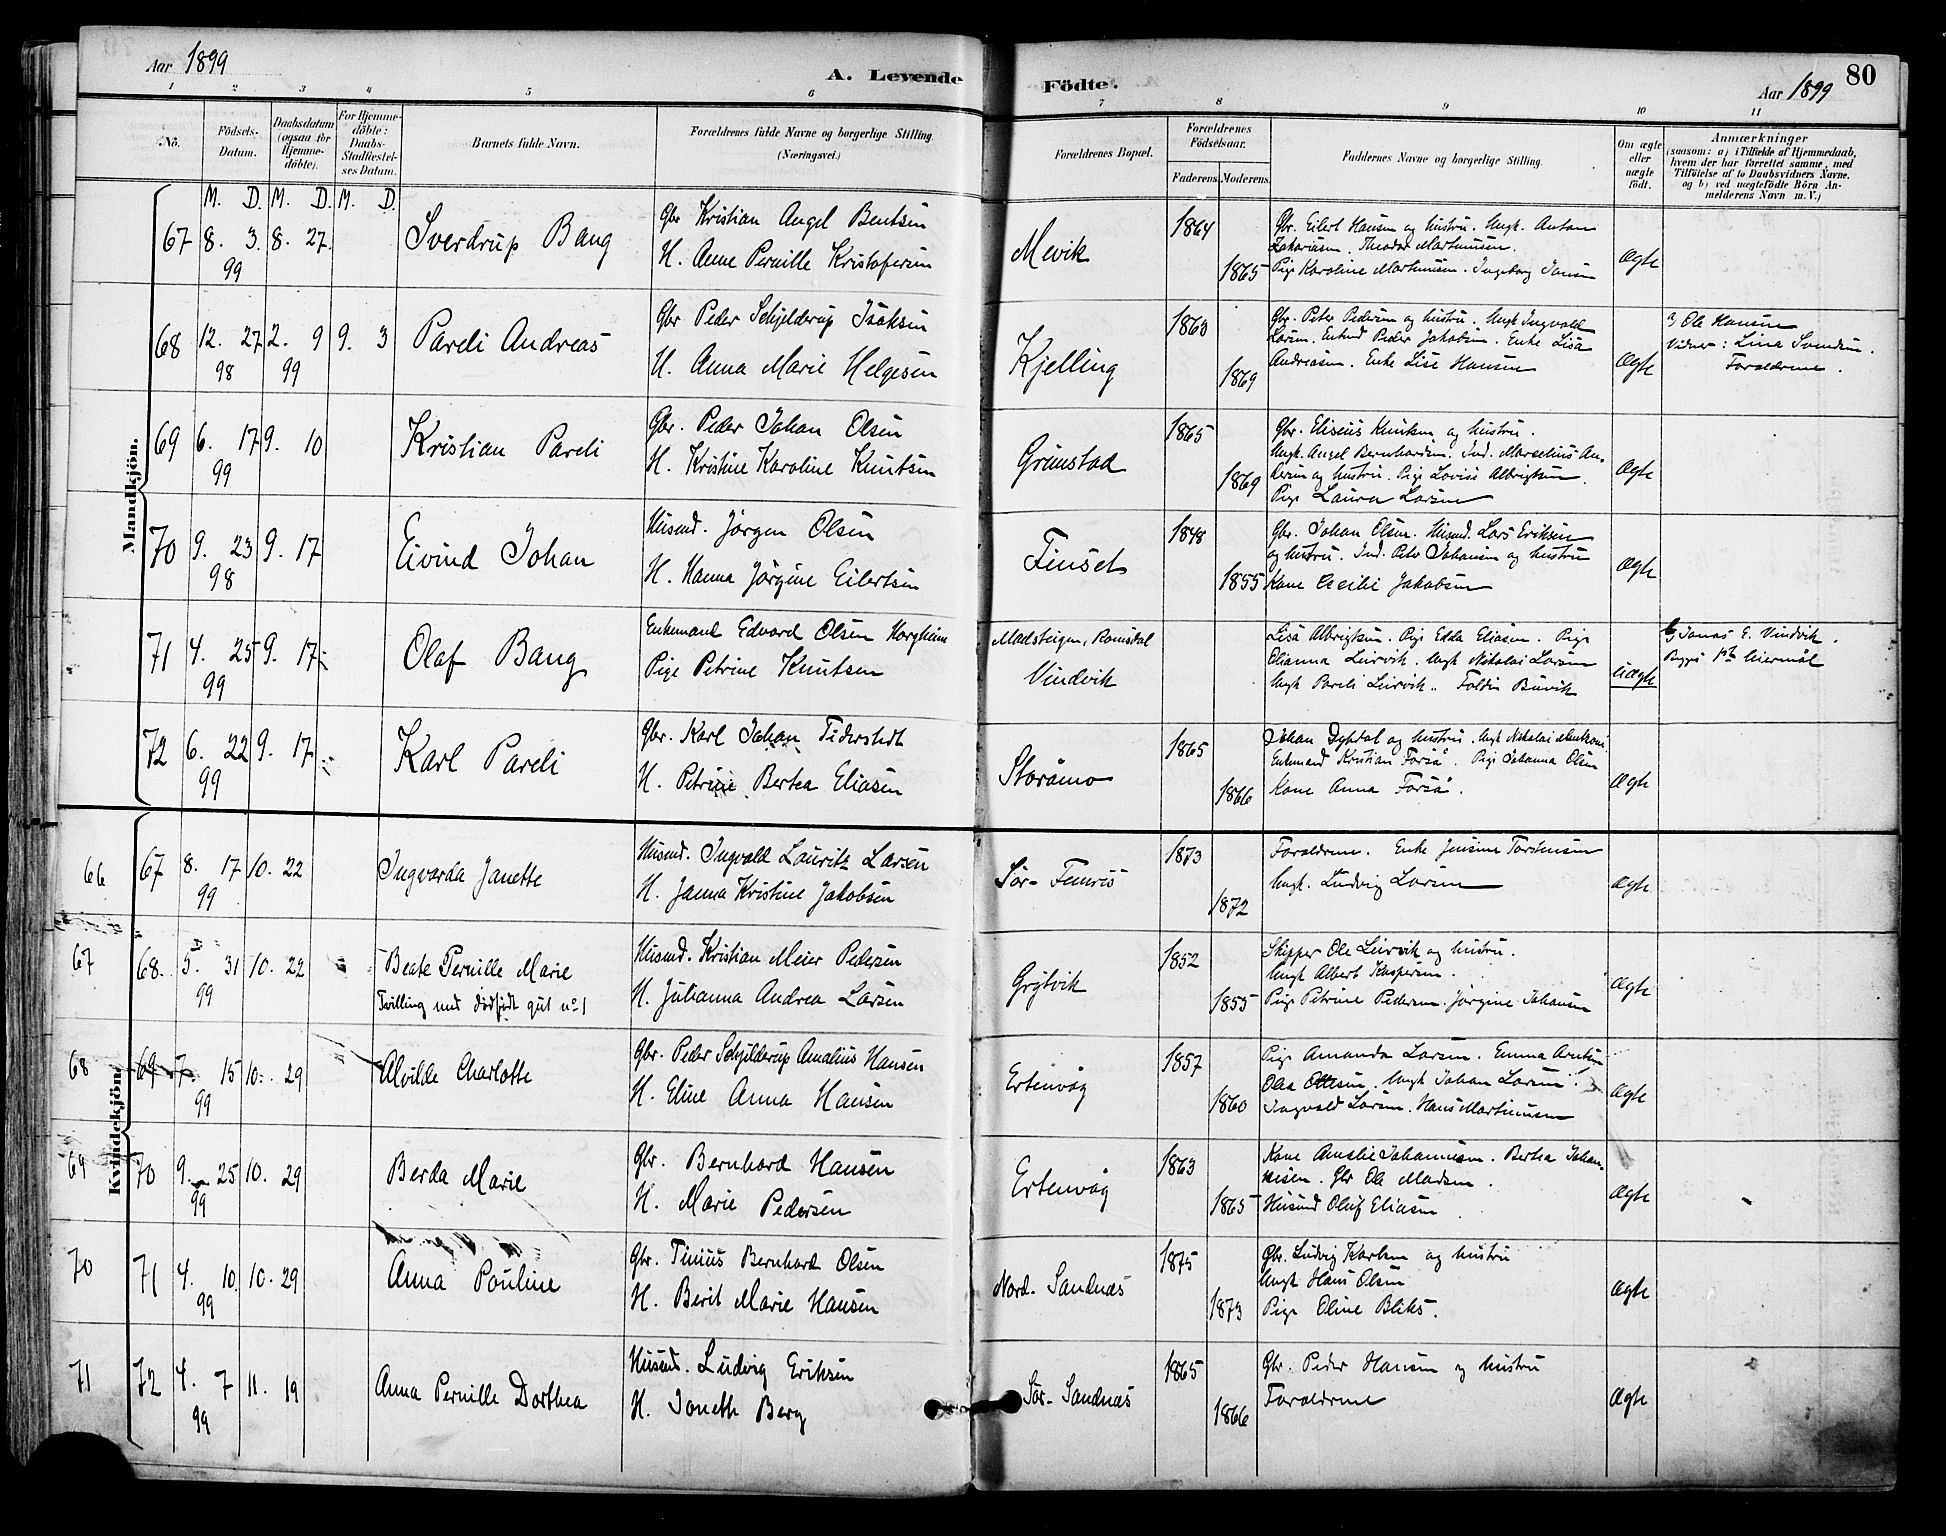 Aar 1899
A. Levende Födte.
Aar 1899
80
1 2 3 4 5 6 7 8 9 10 11
No.
Födsels-Datum.
Daabsdatum (ogsaa for Hjemmedöbte).
For Hjemmedöbte: Daabs-Stadfæstelses Datum.
Barnets fulde Navn.
Forældrenes fulde Navne og borgerlige Stilling.
(Næringsvei.)
Forældrenes Bopæl.
Forældrenes Födselsaar.
Faderens Moderens
Faddernes Navne og borgerlige Stilling.
Om ægte eller uægte födt.
Anmærkninger
(saasom: a) i Tilfælde af Hjemmedaab,
hvem der har forrettet samme, med
Tilföielse af to Daabsvidners Navne,
og b) ved uægtefödte Börn An-
melderens Navn m. V.)
M. D. M. D. M. D.
Mandkjön.
67 8. 3. 8. 27.
99
Sverdrup Bang
Gbr Kristian Angel Bentsen
H. Anne Pernille Kristofersen
Mevik
1864
1865
Gbr. Eilert Hansen og hustru. Ungk. Anton
Zakariasen. Theodor Martinusen.
Pige Karoline Martinusen. Ingeborg Jansen
Ægte
68 12. 27 2. 9 9. 3
98 99
Pareli Andreas
Gbr Peder Schjelderup Isaksen
H. Anna Marie Helgesen
Kjelling
1863
1869
Gbr. Peter Pedersen og hustru. Ungk Ingvald
Larsen. Enkmd Peder Jakobsen. Enke Lisa
Andreasen. Enke Lise Hansen
Ægte
a) Ole Hansen
Vidner: Lina Svendsen.
Forældrene.
69 6. 17 9. 10
99
Kristian Pareli
Gbr. Peder Johan Olsen
H. Kristine Karoline Knutsen
Grimstad
1865
1869
Gbr. Eliseus Knutsen og hustru.
Ungk. Angel Bernhardsen. Ind. Marselius An-
dersen og hustru. Pige Lovise Albrigtsen.
Pige Laura Larsen
Ægte
70 9. 23 9. 17
98
Eivind Johan
Husmd. Jørgen Olsen
H. Hanna Jørgine Eilertsen
Finset
1848
1855
Gbr. Johan Olsen. Husmd. Lars Eriksen
og hustru. Ind. Peter Johansen og hustru
Kone Cecilie Jakobsen
Ægte
71 4. 25 9. 17
99
Olaf Bang
Enkemand Edvard Olsen Horgheim
Pige Petrine Knutsen
Madsteigen, Romsdal
Vindvik
Lisa Albrigtsen. Pige Edda Eliasen. Pige
Elianna Leirvik. Ungk Nikolai Larsen
Ungk Pareli Leirvik. Foldin Buvik
Uægte
b) Jonas E. Vindvik.
72 6. 22 9. 17
99
Karl Pareli
Gbr. Karl Johan Tiderstedt
H. Petrine Bertea Eliasen
Storåmo
1865
1866
Johan Dybdal og hustru. Ungk Nikolai
Enkemand Kristian Forså. Pige Johanna Olsen
Kone Anna Forså.
Ægte
Kvindekjön.
66 67 8. 17 10. 22
99
Ingvarda Janette
Husmd. Ingvald Lauritz Larsen
H. Janna Kristine Jakobsen
Sør-Femris
1873
1872
Forældrene. Enke Jensine Torstensen
Ungk. Ludvig Larsen
Ægte
67 68. 5. 31 10. 22
99
Beate Pernille Marie
Tvilling med dødfødt gut no 1
Husmd. Kristian Meier Pedersen
H. Julianna Andrea Larsen
Grytvik
1852
1855
Skipper Ole Leirvik og hustru.
Ungk Albert Kaspersen.
Pige Petrine Pedersen. Jørgine Johansen
Ægte
68 69 7. 15 10. 29
99
Alvilde Charlotte
Gbr. Peder Schjelderup Amalius Hansen
H. Eline Anna Hansen
Ertenvåg
1857
1860
Pige Amanda Larsen. Emma Arntsen
Olea Ottesen. Ungk Johan Larsen.
Ingvald Larsen. Hans Martinusen
Ægte
69 70 9. 25 10. 29
99
Berda Marie
Gbr. Bernhard Hansen
H. Marie Pedersen
Ertenvåg
1863
1865
Kone Amalie Johannesen. Bertea Johan-
nesen. Gbr Ole Madsen.
Husmd Oluf Eliasen
Ægte
70 71 4. 10. 10. 29
99
Anna Pouline
Gbr. Tinius Bernhard Olsen
H. Berit Marie Hansen
Nord-Sandnæs
1875
1873
Gbr. Ludvig Karlsen og hustru
Ungk Hans Olsen
Pige Oline Bliks.
Ægte
71 72 4. 7 11. 19
99
Anna Pernille Dorthea
Husmd. Ludvig Eriksen
H. Joneth Berg
Sør-Sandnæs
1865
1866
Gbr. Peder Hansen og hustru
Forældrene
Ægte